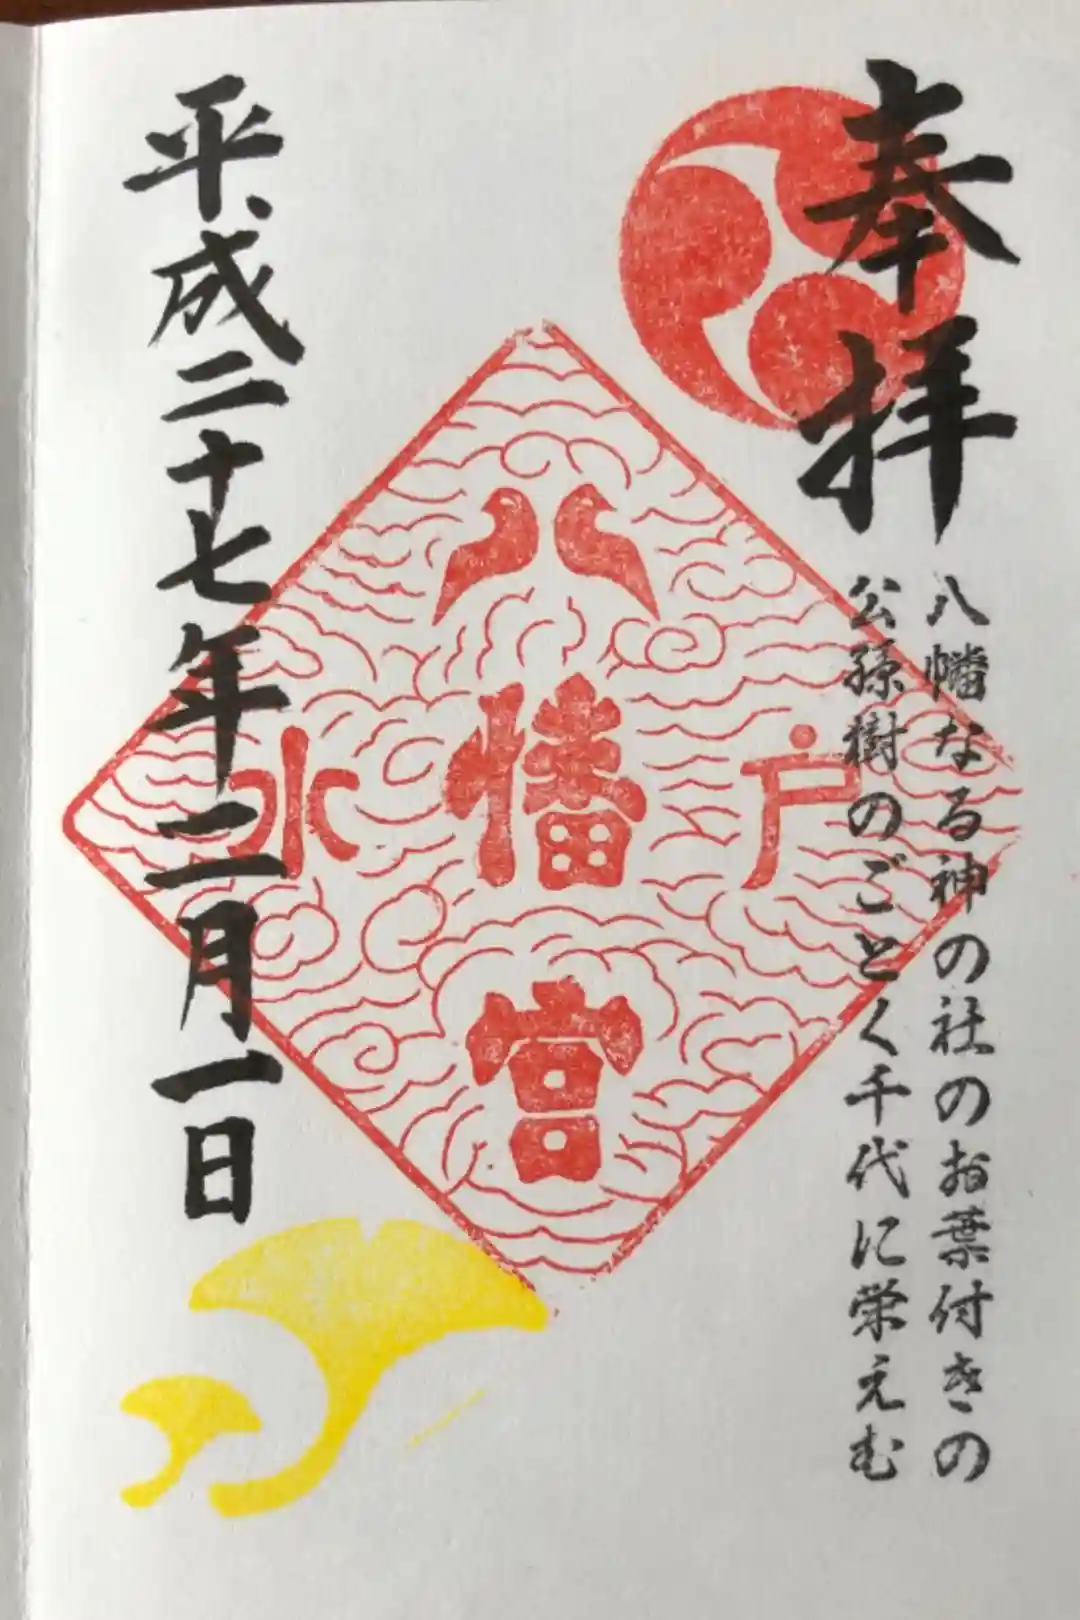 奉拝
八幡なる神の社のお葉付きの
公孫樹のごとく千代に栄えむ
水戸
八幡宮
平成二十七年二月一日